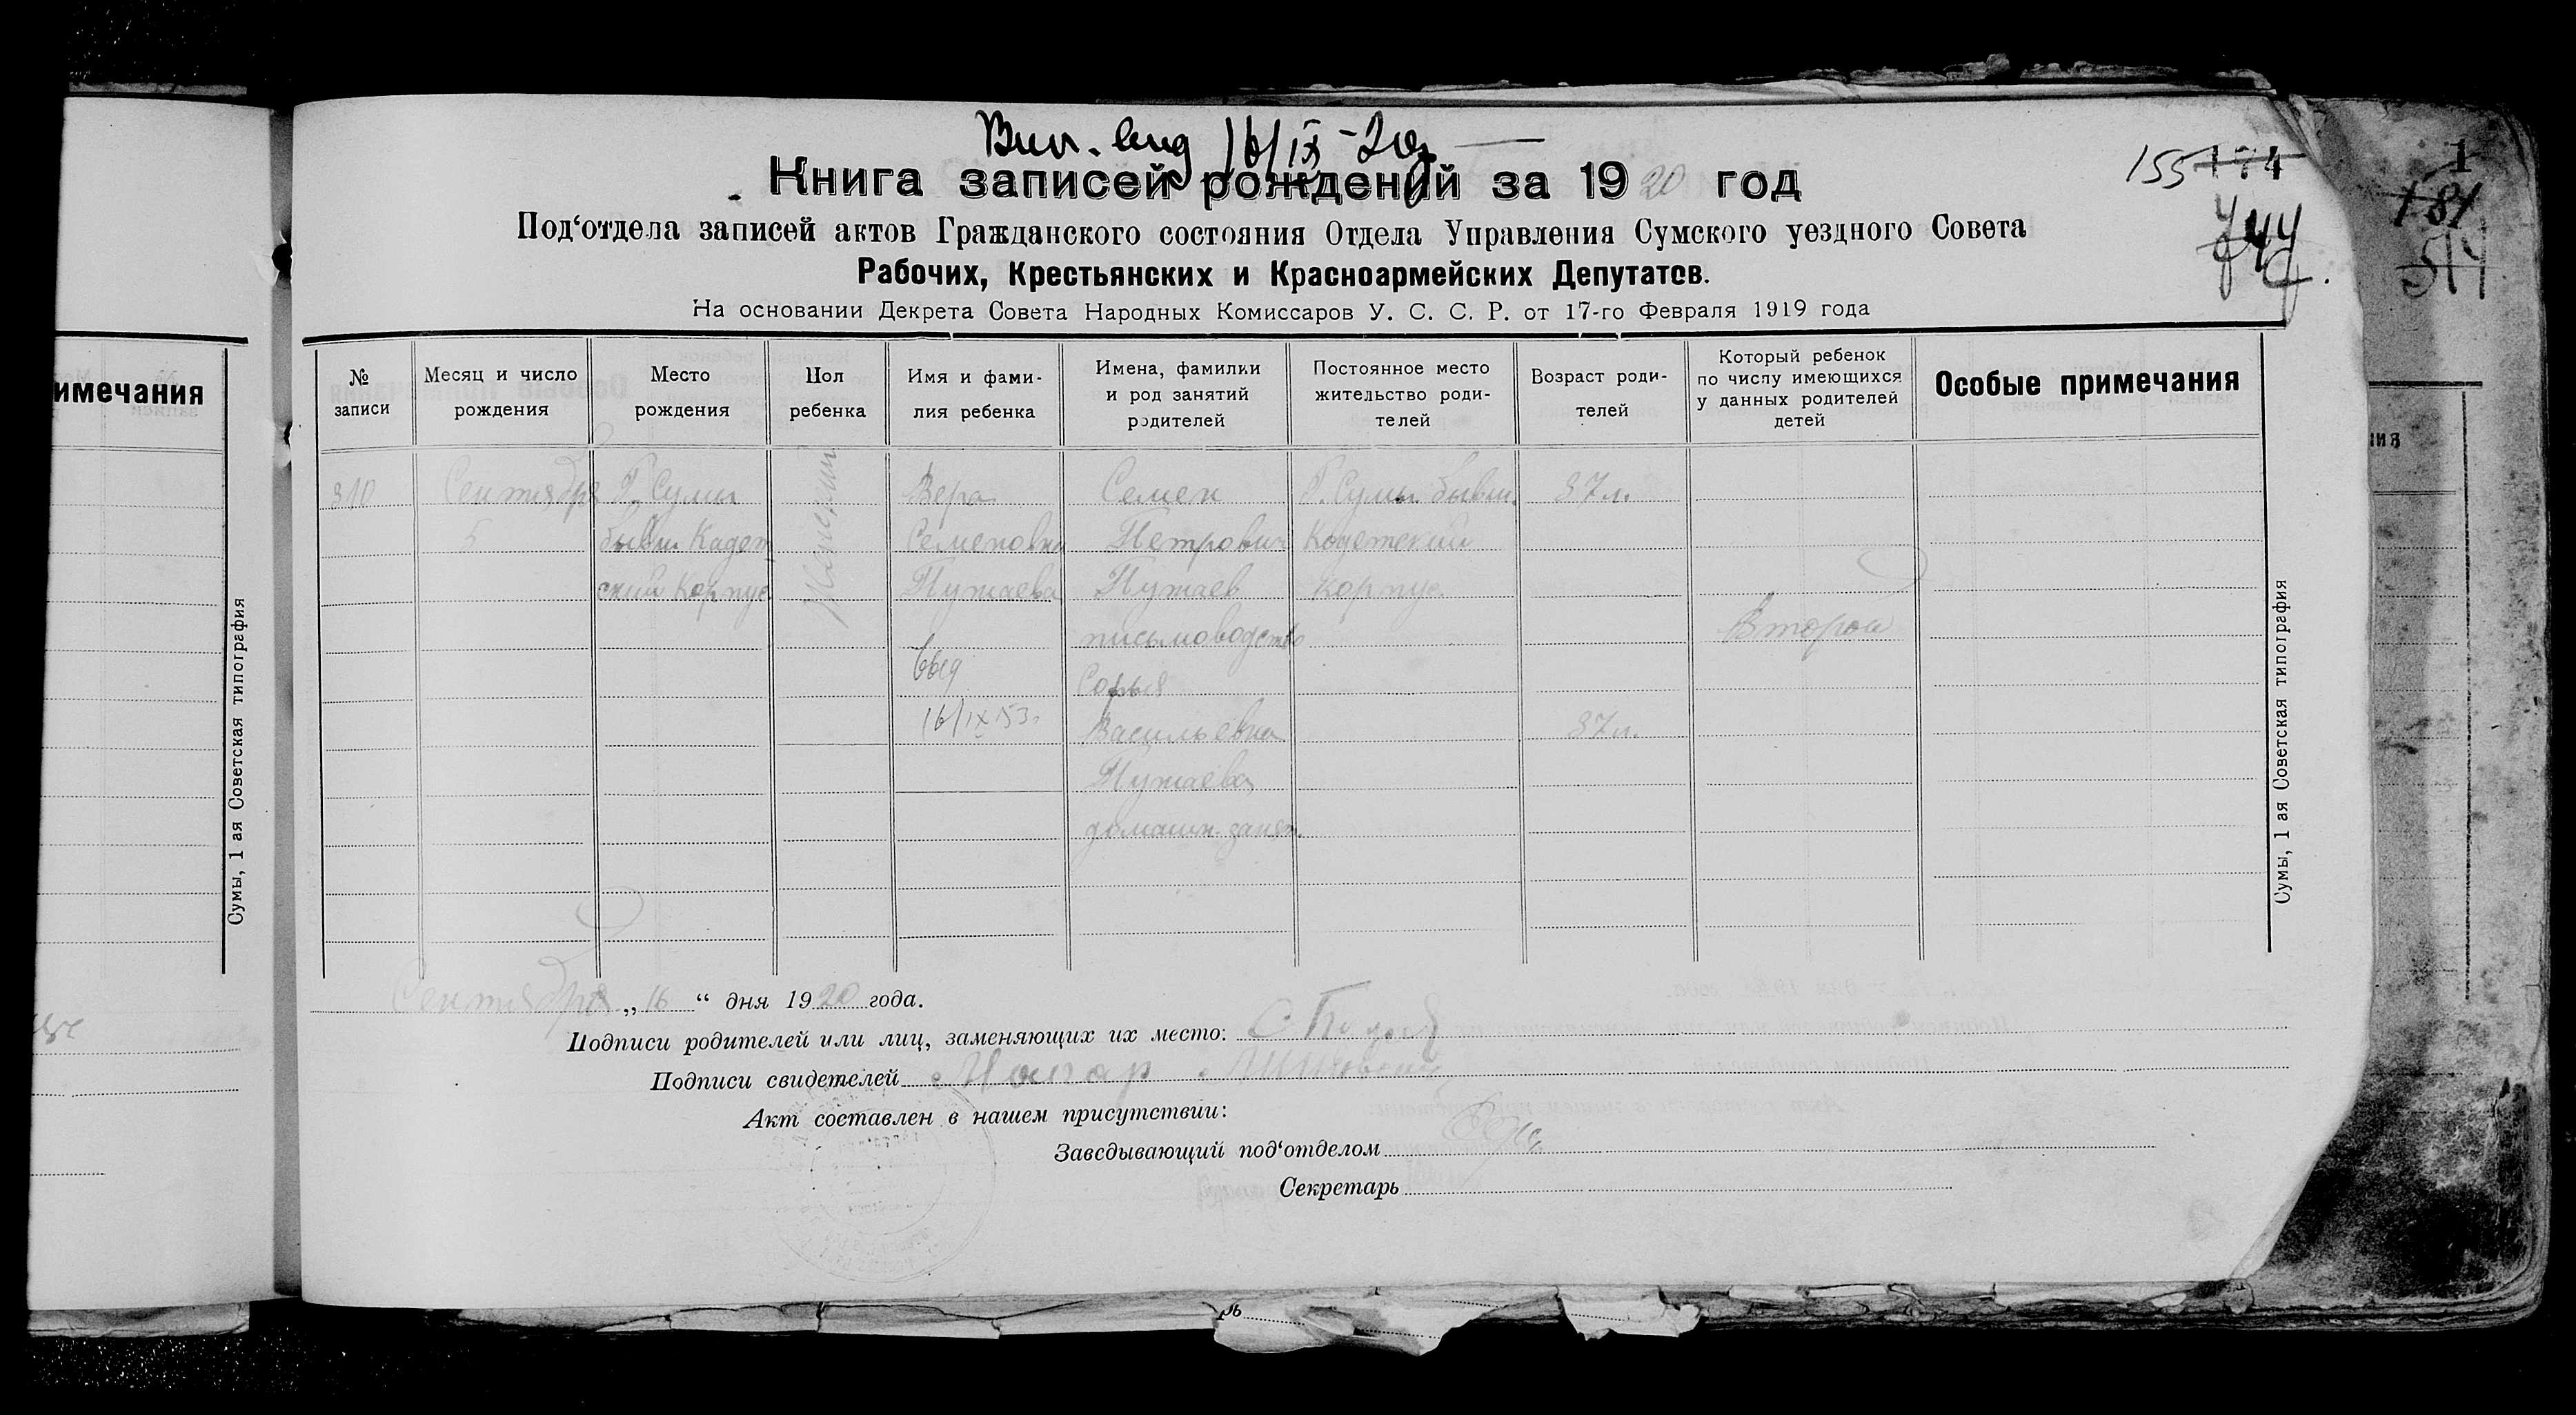 16/IX-20г
Книга записей рождений за 1920 год
155 174
Под‘отдела записей актов Гражданского состояния Отдела Управления Сумского уездного Совета
Рабочих, Крестьянских и Красноармейских Депутатов.
На основании Декрета Совета Народных Комиссаров У. С. С. Р. от 17-го Февраля 1919 года
1
181
514
имечания
№ записи
Месяц и число рождения
Место рождения
Пол ребенка
Имя и фами-
лия ребенка
Имена, фамилии
и род занятий
родителей
Постоянное место
жительство роди-
телей
Возраст роди-
телей
Который ребенок
по числу имеющихся
у данных родителей
детей
Особые примечания
ния
310
Сентября
5
Г. Сумы
бывш Кадет
ский Корпус
Женский
Вера
Семеновна
Пужаева
выд
16/IX 53г
Семен
Петрович
Пужаев
письмоводство
Софья
Васильевна
Пужаева
домашн. занят.
Г. Сумы бывш.
Кадетский
Корпус
37 л.
37 л.
Второй
Сумы, 1 ая Советская типография
Сумы, 1 ая Советская типография
Сентября „16“ дня 1920 года.
Подписи родителей или лиц, заменяющих их место:
Подписи свидетелей
Акт составлен в нашем присутствии:
Заведывающий под‘отделом
Секретарь